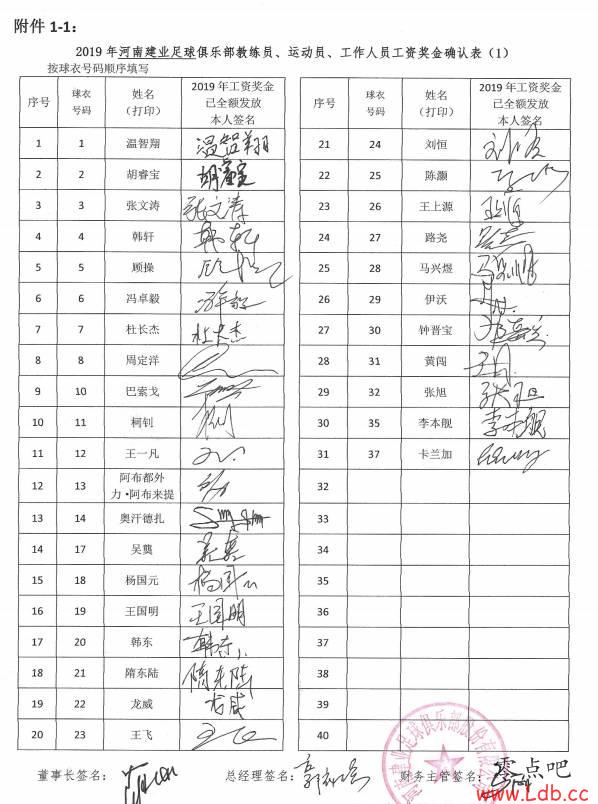 附件 1-1：
2019 年河南建业足球俱乐部教练员、运动员、工作人员工资奖金确认表（1）
按球衣号码顺序填写
序号 球衣号码 姓名（打印） 2019 年工资奖金已全额发放本人签名
1 1 温智翔 温智翔
2 2 胡睿宝 胡睿宝
3 3 张文涛 张文涛
4 4 韩轩 韩轩
5 5 顾操 顾操
6 6 冯卓毅 冯卓毅
7 7 杜长杰 杜长杰
8 8 周定洋
9 10 巴索戈
10 11 柯钊
11 12 王一凡
12 13 阿布都外力·阿布来提
13 14 奥汗德扎
14 17 吴龑
15 18 杨国元 杨国元
16 19 王国明 王国明
17 20 韩东 韩东
18 21 隋东陆 隋东陆
19 22 龙威 龙威
20 23 王飞
序号 球衣号码 姓名（打印） 2019 年工资奖金已全额发放本人签名
21 24 刘恒 刘恒
22 25 陈灏
23 26 王上源
24 27 路尧 路尧
25 28 马兴煜 马兴煜
26 29 伊沃
27 30 钟晋宝
28 31 黄闯
29 32 张旭 张旭
30 35 李本舰 李本舰
31 37 卡兰加
32
33
34
35
36
37
38
39
40
董事长签名：
总经理签名：
财务主管签名：
零点吧
www.Ldb.cc